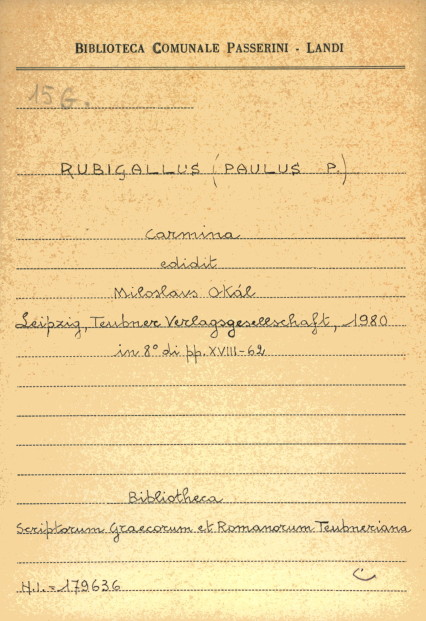 BIBLIOTECA COMUNALE PASSERINI - LANDI
15 G.
RUBIGALLUS (PAULUS P.)
Carmina
edidit
Miloslaus Okál
Leipzig, Teubner Verlagsgesellschaft, 1980
in 8° di pp. XVIII-62
Bibliotheca
Scriptorum Graecorum et Romanorum Teubneriana
N.I. = 179636